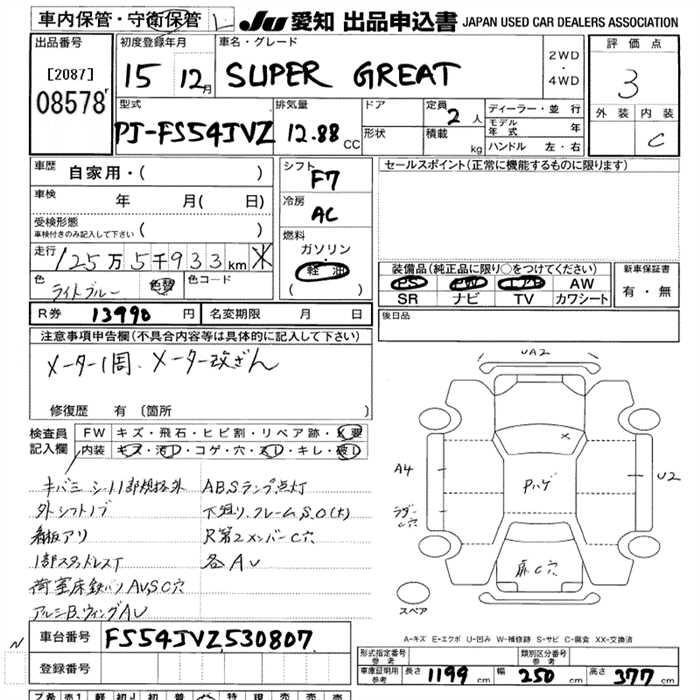 車内保管・守衛保管
JU 愛知 出品申込書 JAPAN USED CAR DEALERS ASSOCIATION
出品番号
[2087]
08578
初度登録年月
15 12月
車名・グレード
SUPER GREAT
2WD
・
4WD
評価点
3
外装 内装
C
型式
PJ-FS54JVZ
排気量
12.88 CC
ドア
形状
定員
2人
積載
kg
ディーラー・並行
モデル年式 年
ハンドル 左・右
車歴
自家用・( )
車検
年 月( 日)
受検形態
車検付きのみ記入して下さい ( )
走行
125万5千933km ※
色
ライトブルー
色替
色コード
シフト
F7
冷房
AC
燃料
ガソリン
軽油
( )
セールスポイント(正常に機能するものに限ります)
装備品(純正品に限り○をつけてください)
PS PW エアB AW
SR ナビ TV カワシート
新車保証書
有・無
R券 13990円
名変期限 月 日
後日品
注意事項申告欄(不具合内容等は具体的に記入して下さい)
メーター1周、メーター改ざん
修復歴 有(箇所 )
検査員記入欄
FW キズ・飛石・ヒビ割・リペア跡・X要
内装 キズ・汚レ・コゲ・穴・スレ・キレ・破レ
キバミ シート1部規格外
ABSランプ点灯
外シフトノブ
下廻り、フレームS.C(大)
看板アリ
R第2メンバーC穴
1部スタッドレスT
各AU
荷室床鉄板ハツAUSC穴
アルミB.ウィングAU
UA2
A4
U2
Pハゲ
床C穴
スペア
A-キズ E-エクボ U-凹み W-補修跡 S-サビ C-腐食 XX-交換済
N
車台番号
FS54JVZ,530807
登録番号
形式指定番号
参考
類別区分番号
参考
車庫証明用
参考
長さ 1199 cm
幅 250 cm
高さ 377 cm